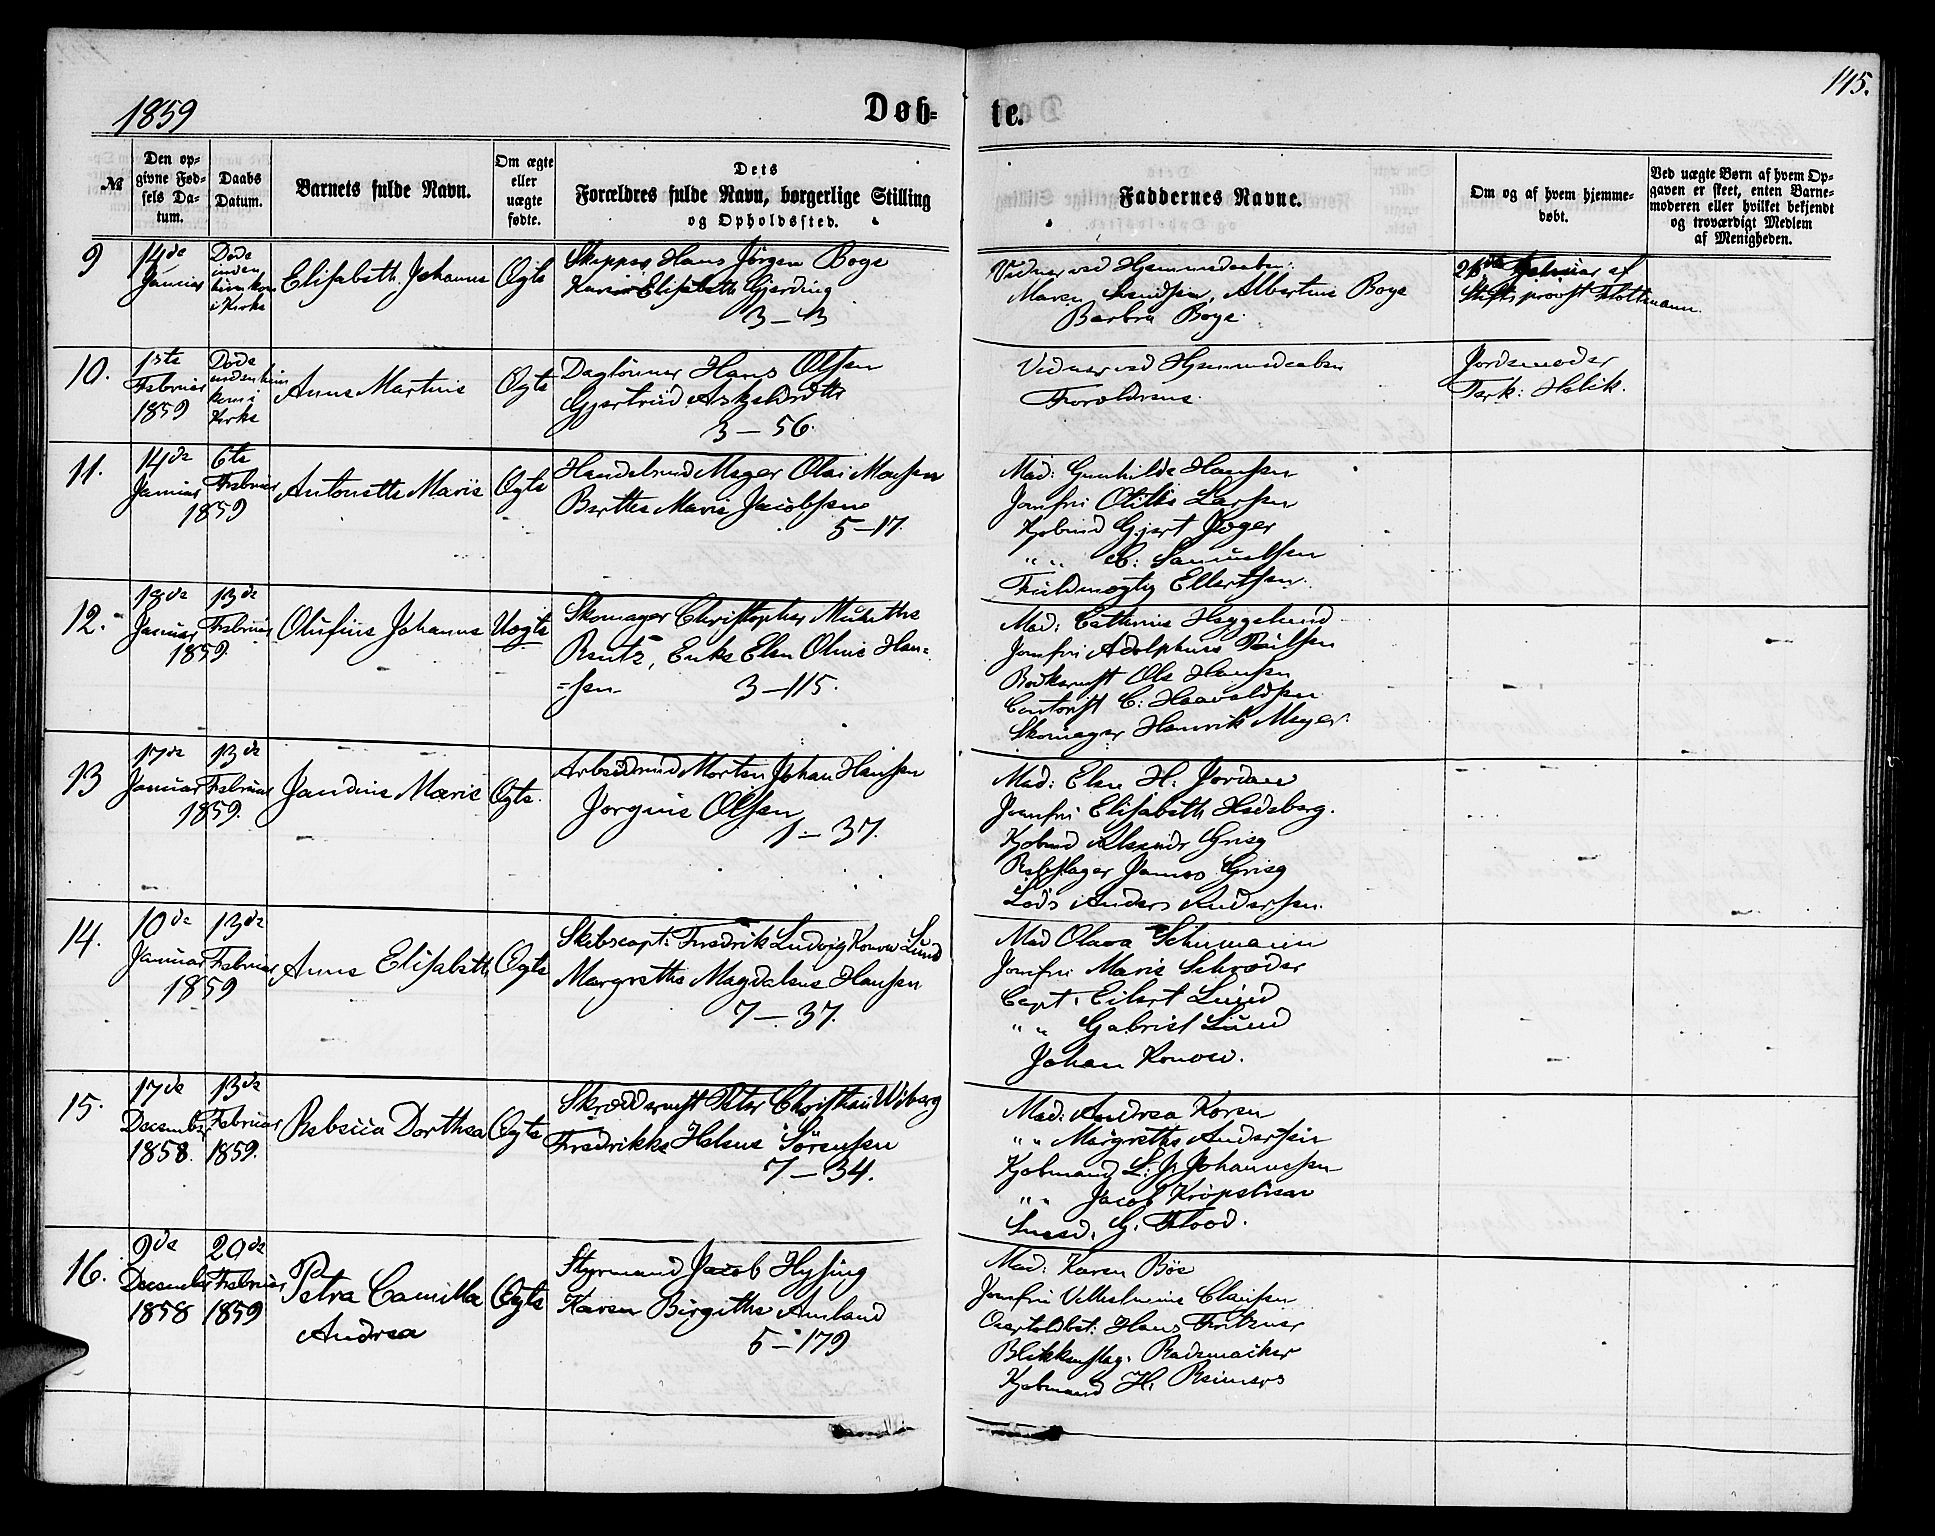 1859
Døb=
te.
145.
№
Den op=
givne Fød=
sels Da=
tum.
Daabs
Datum.
Barnets fulde Navn.
Om ægte
eller
uægte
fødte.
Dets
Forældres fulde Navn, borgerlige Stilling
og Opholdssted.
Faddernes Navne.
Om og af hvem hjemme=
døbt.
Ved uægte Børn af hvem Op=
gaven er skeet, enten Barne=
moderen eller hvilket bekjendt
og troværdigt Medlem
af Menigheden.
9
14de
Januar
Døde
inden
i Kirke
Elisabeth Johanne
Ægte
Skipper Hans Jørgen Boge
Elisabeth Gjerding
3 – 3
Vidner ved Hjemmedaaben:
Maren Svendsen, Albertine Boge
Barbra Boge
Februar af
Stiftsprovst Flottmann.
10.
1ste
Februar
1859
Døde
inden
kom i
Kirke
Anne Martine
Ægte
Daglønner Hans Olsen
Gjertrud Askjeldsdttr
3 – 56.
Vidner ved Hjemmedaaben
Forældrene.
Jordemoder
11.
14de
Januar
6te
Februar
1859
Antonette Marie
Ægte
Olai Monsen
Berthe Marie Jacobsen
5 – 17.
Mad: Gunhilde Hansen
Jomfru Otilie Larsen
Kjøbmd Gjert Jæger
„ „ C: Samuelsen
Fuldmægtig Ellertsen.
12.
18de
Januar
13de
Februar
1859.
Olufine Johanne
Uægte
Skomager Christopher
Rentz, Enke Elen Oline Han=
=sen
3 – 115.
Mad: Cathrine Heggelund
Jomfru Adolphine Poulsen
Ole Hansen
Contorist C: Haavaldsen
Skomager Henrik Meyer.
13
17de
Januar
13de
Februar
1859.
Jandine Marie
Ægte.
Arbeidsmd Morten Johan Hansen
Jørgine Olsen
1 – 37.
Mad: Elen H: Jordan
Jomfru Elisabeth Hedeberg.
Kjøbmd Grieg
Rebslager James Grieg
Lods Anders Andersen.
14.
10de
Januar
13de
Februar
1859
Anne Elisabeth
Ægte
Skibscapt: Fredrik Ludvig Konow Lund
Margrethe Magdalene Hansen
7 – 37.
Mad Olava Schumann
Jomfru Marie Schrøder
Capt: Eilert Lund
„ „ Gabriel Lund
Johan Konow.
15.
17de
December
1858.
13de
Februar
1859.
Rebecca Dorthea
Ægte
Peter Christian Wiberg
Fredrikke Helene Sørensen
7 – 34.
Mad: Andrea Koren
„ „ Margrethe Andersen
Kjøbmand L: J: Johannesen
„ „ Jacob
G: Flood.
16.
9de
December
1858
20de
Februar
1859
Petra Camilla
Andrea
Ægte
Styrmand Jacob Hysing
Karen Birgithe Amland
5 – 179
Mad: Karen Bøe
Jomfru Vilhelmine Clausen
Overtoldbet: Hans Fritzner
Blikkenslag. Rademacker
Kjøbmand H: Reimers